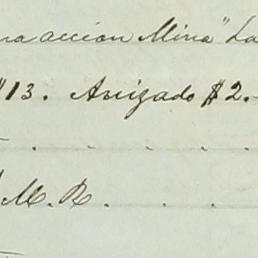 na accion Mina "La
$13. Avizado $2.-
. . . .
M. R. . . .